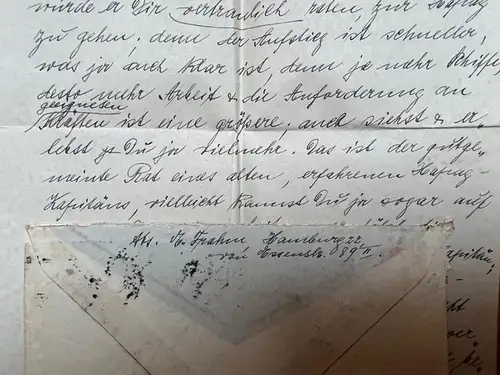 würde er Dir vertraulich raten, zur Hapag
zu gehen, denn der Aufstieg ist schneller,
was ja auch klar ist, denn je mehr Schiffe
desto mehr Arbeit & die Anforderung an
geeigneten
Kräften ist eine grössere, auch siehst & er-
lebst Du ja vielmehr. Das ist der gutge-
meinte Rat eines alten, erfahrenen Hapag-
Kapitäns, vielleicht kannst Du ja sogar auf
Abs. Frahm, Hamburg 22,
von Essenstr. 89 II.